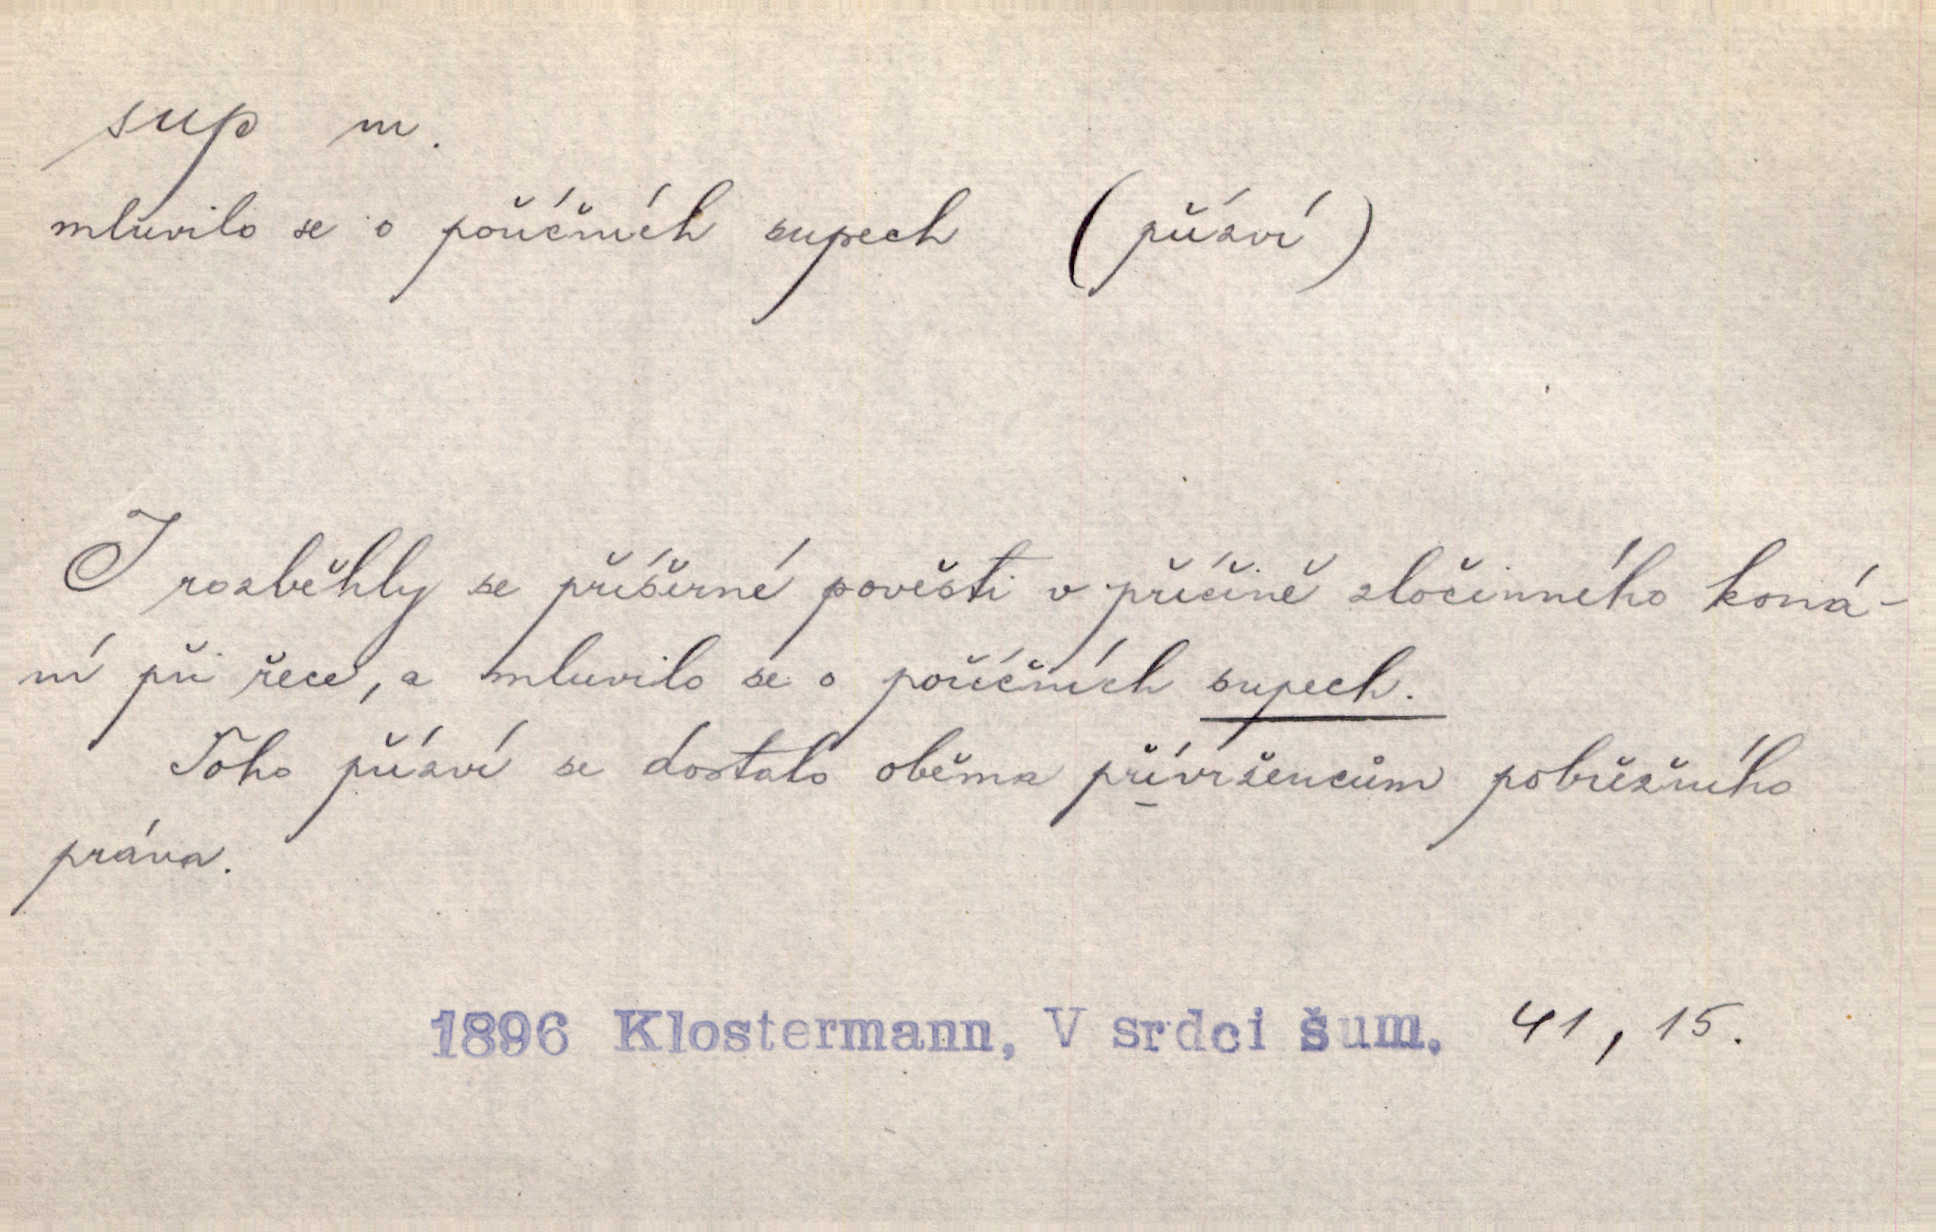 sup m.
mluvilo se o poříčních supech (přízví)
I rozběhly se příšerné pověsti v příčině zločinného koná-
ní při řece, a mluvilo se o poříčních supech.
Toho přízví se dostalo oběma přívržencům pobřežního
práva.
1896 Klostermann, V srdci šum. 41, 15.